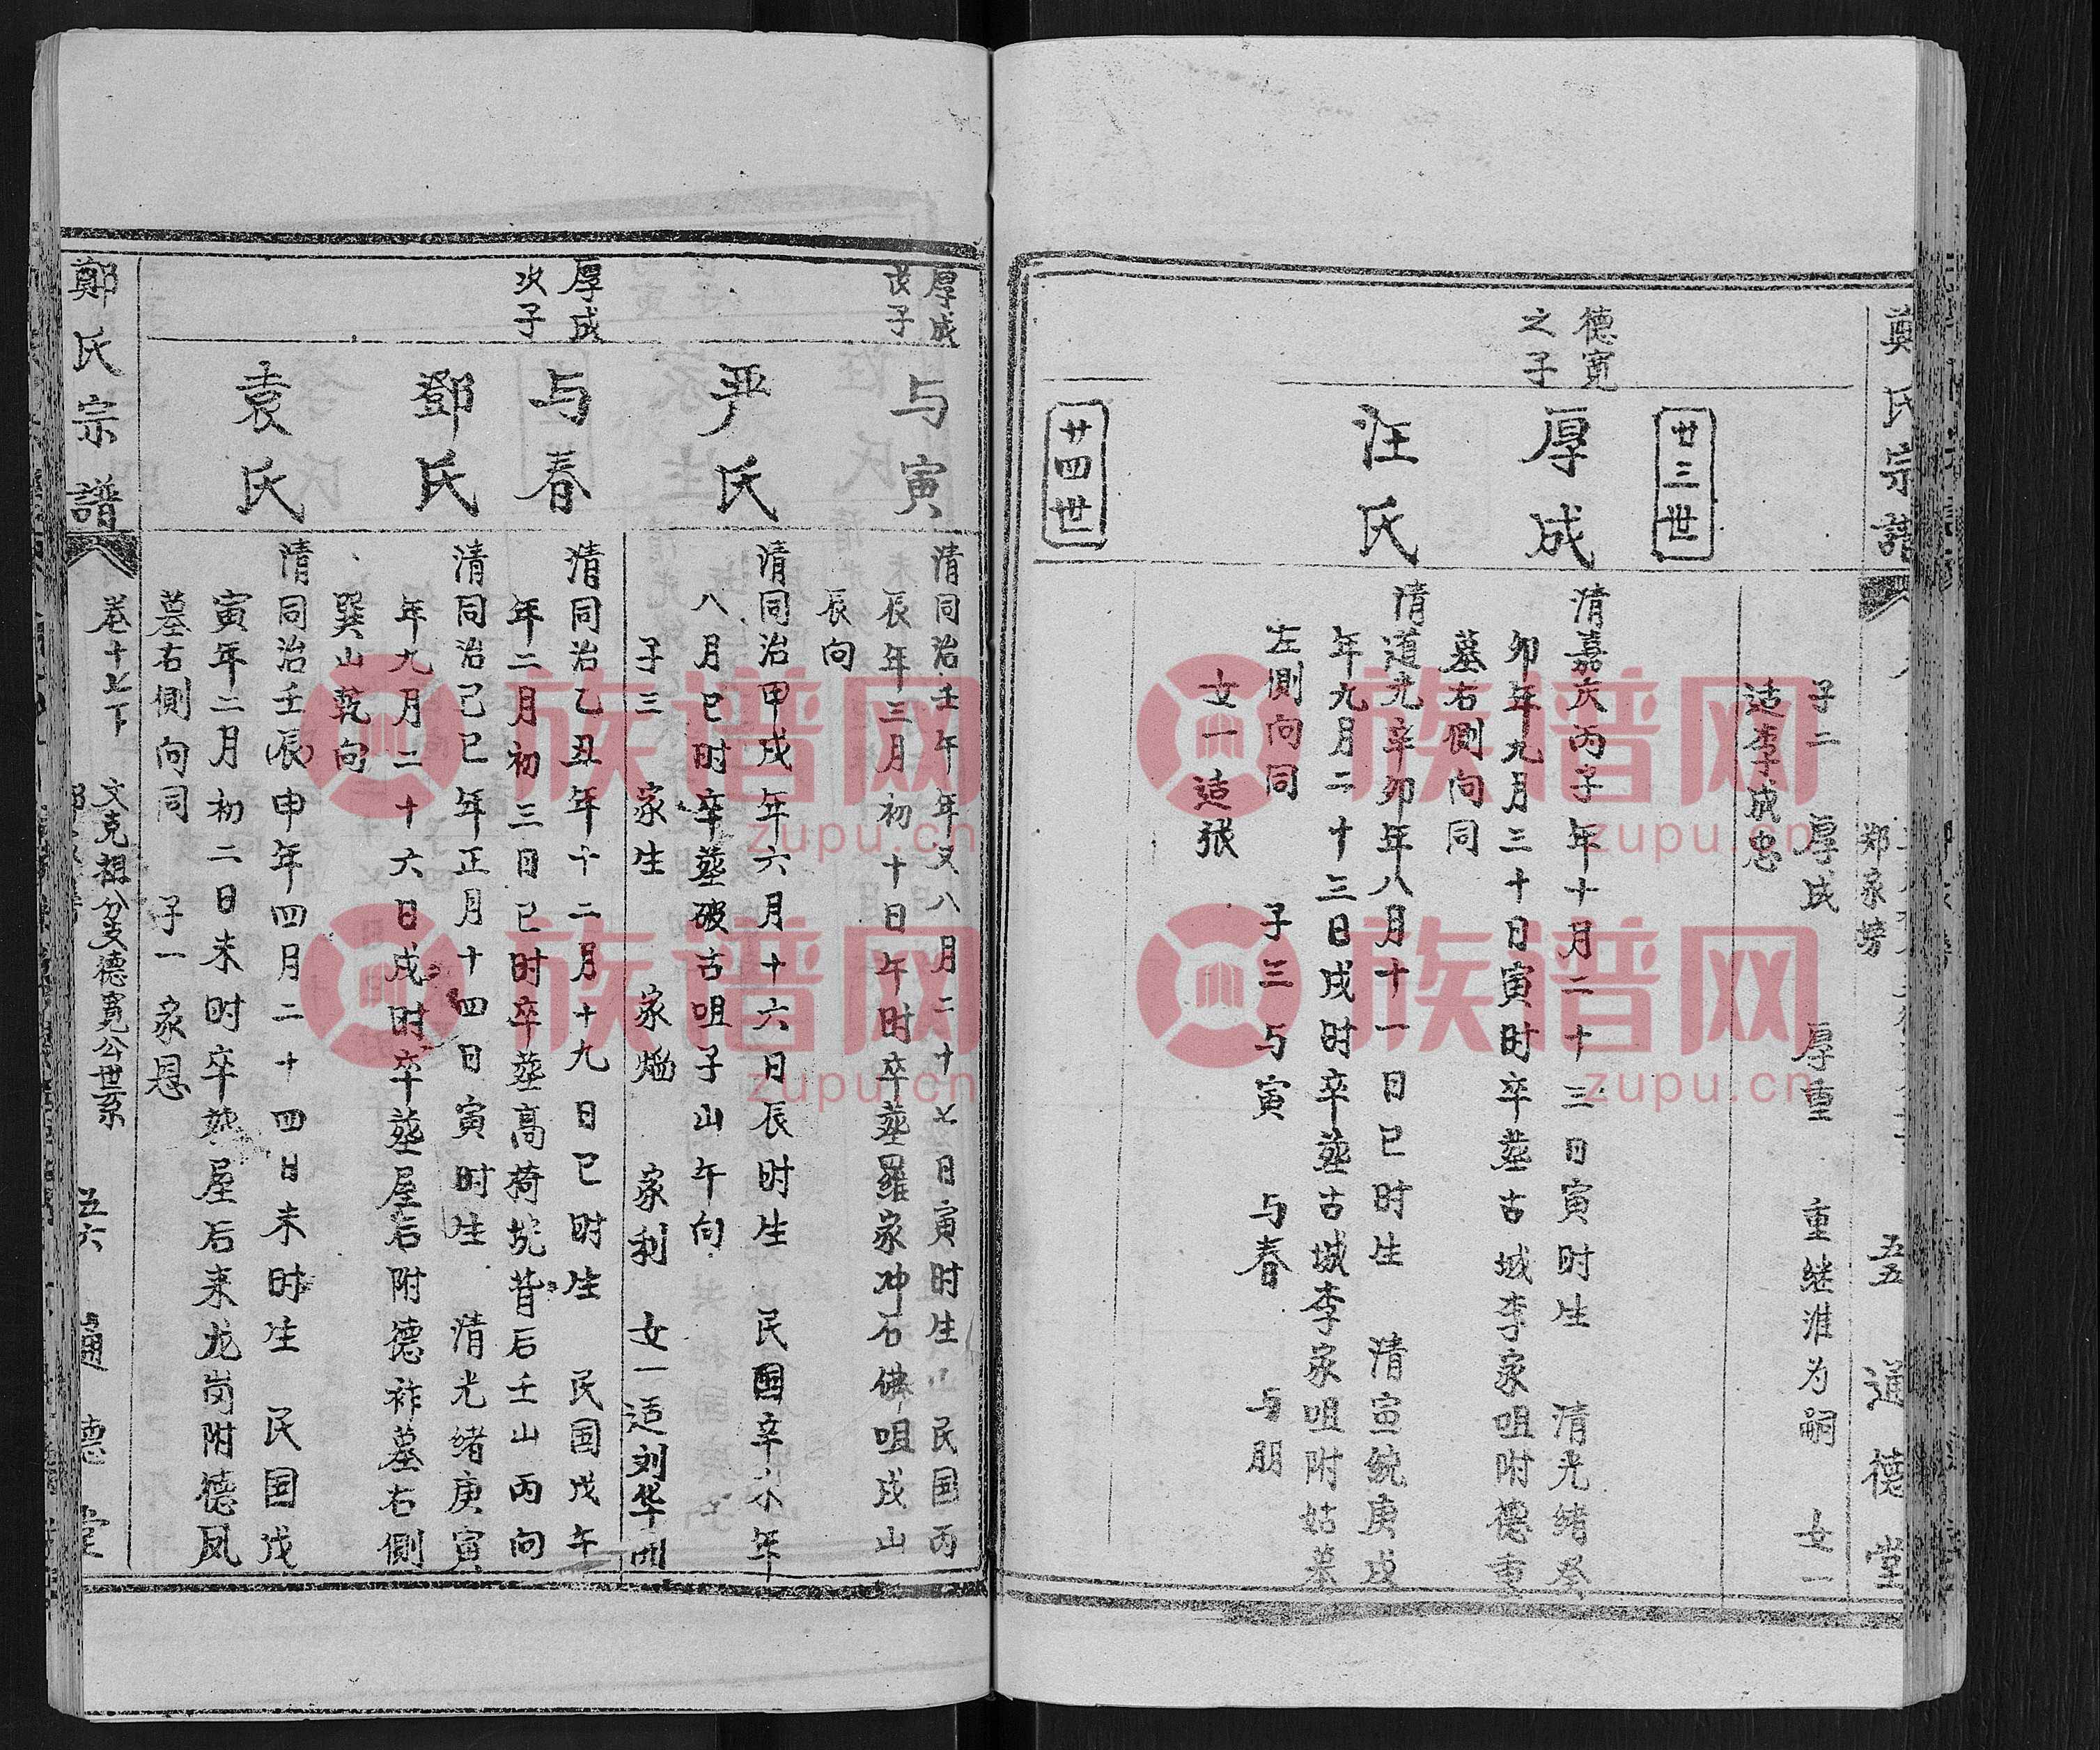 鄭氏宗譜
五五
通德堂
子二 厚成 厚重 重继淮为嗣 女一
适李成忠
廿三世
德宽
之子
厚成
清嘉庆丙子年十月二十三日寅时生 清光绪癸
卯年九月三十日寅时卒塟古城李家咀附德重
墓右侧向同
汪氏
清道光辛卯年八月十一日巳时生 清宣统庚戌
年九月二十三日戌时卒塟古城李家咀附姑墓
左侧向同 子三 与寅 与春 与朋
女一适张
廿四世
厚成
长子
与寅
清同治壬午年又八月二十七日寅时生 民国丙
辰年三月初十日午时卒塟羅家冲石佛咀戌山
辰向
严氏
清同治甲戌年六月十六日辰时生 民国辛未年
八月巳时卒塟破古咀子山午向
子三 家生 家焰 家利 女一适刘华開
厚成
次子
与春
清同治乙丑年十二月十九日巳时生 民国戊午
年二月初三日巳时卒塟高椅垸背后壬山丙向
鄧氏
清同治己巳年正月十四日寅时生 清光绪庚寅
年九月二十六日戌时卒塟屋后附德祚墓右侧
巽山乾向
袁氏
清同治壬辰申年四月二十四日未时生 民国戊
寅年二月初二日未时卒塟屋后来龙岗附德凤
墓右侧向同 子一 家恩
鄭氏宗譜
卷十七下
文克想公支德宽公世系
五六
通德堂
族谱网
zupu.cn
族谱网
zupu.cn
族谱网
zupu.cn
族谱网
zupu.cn